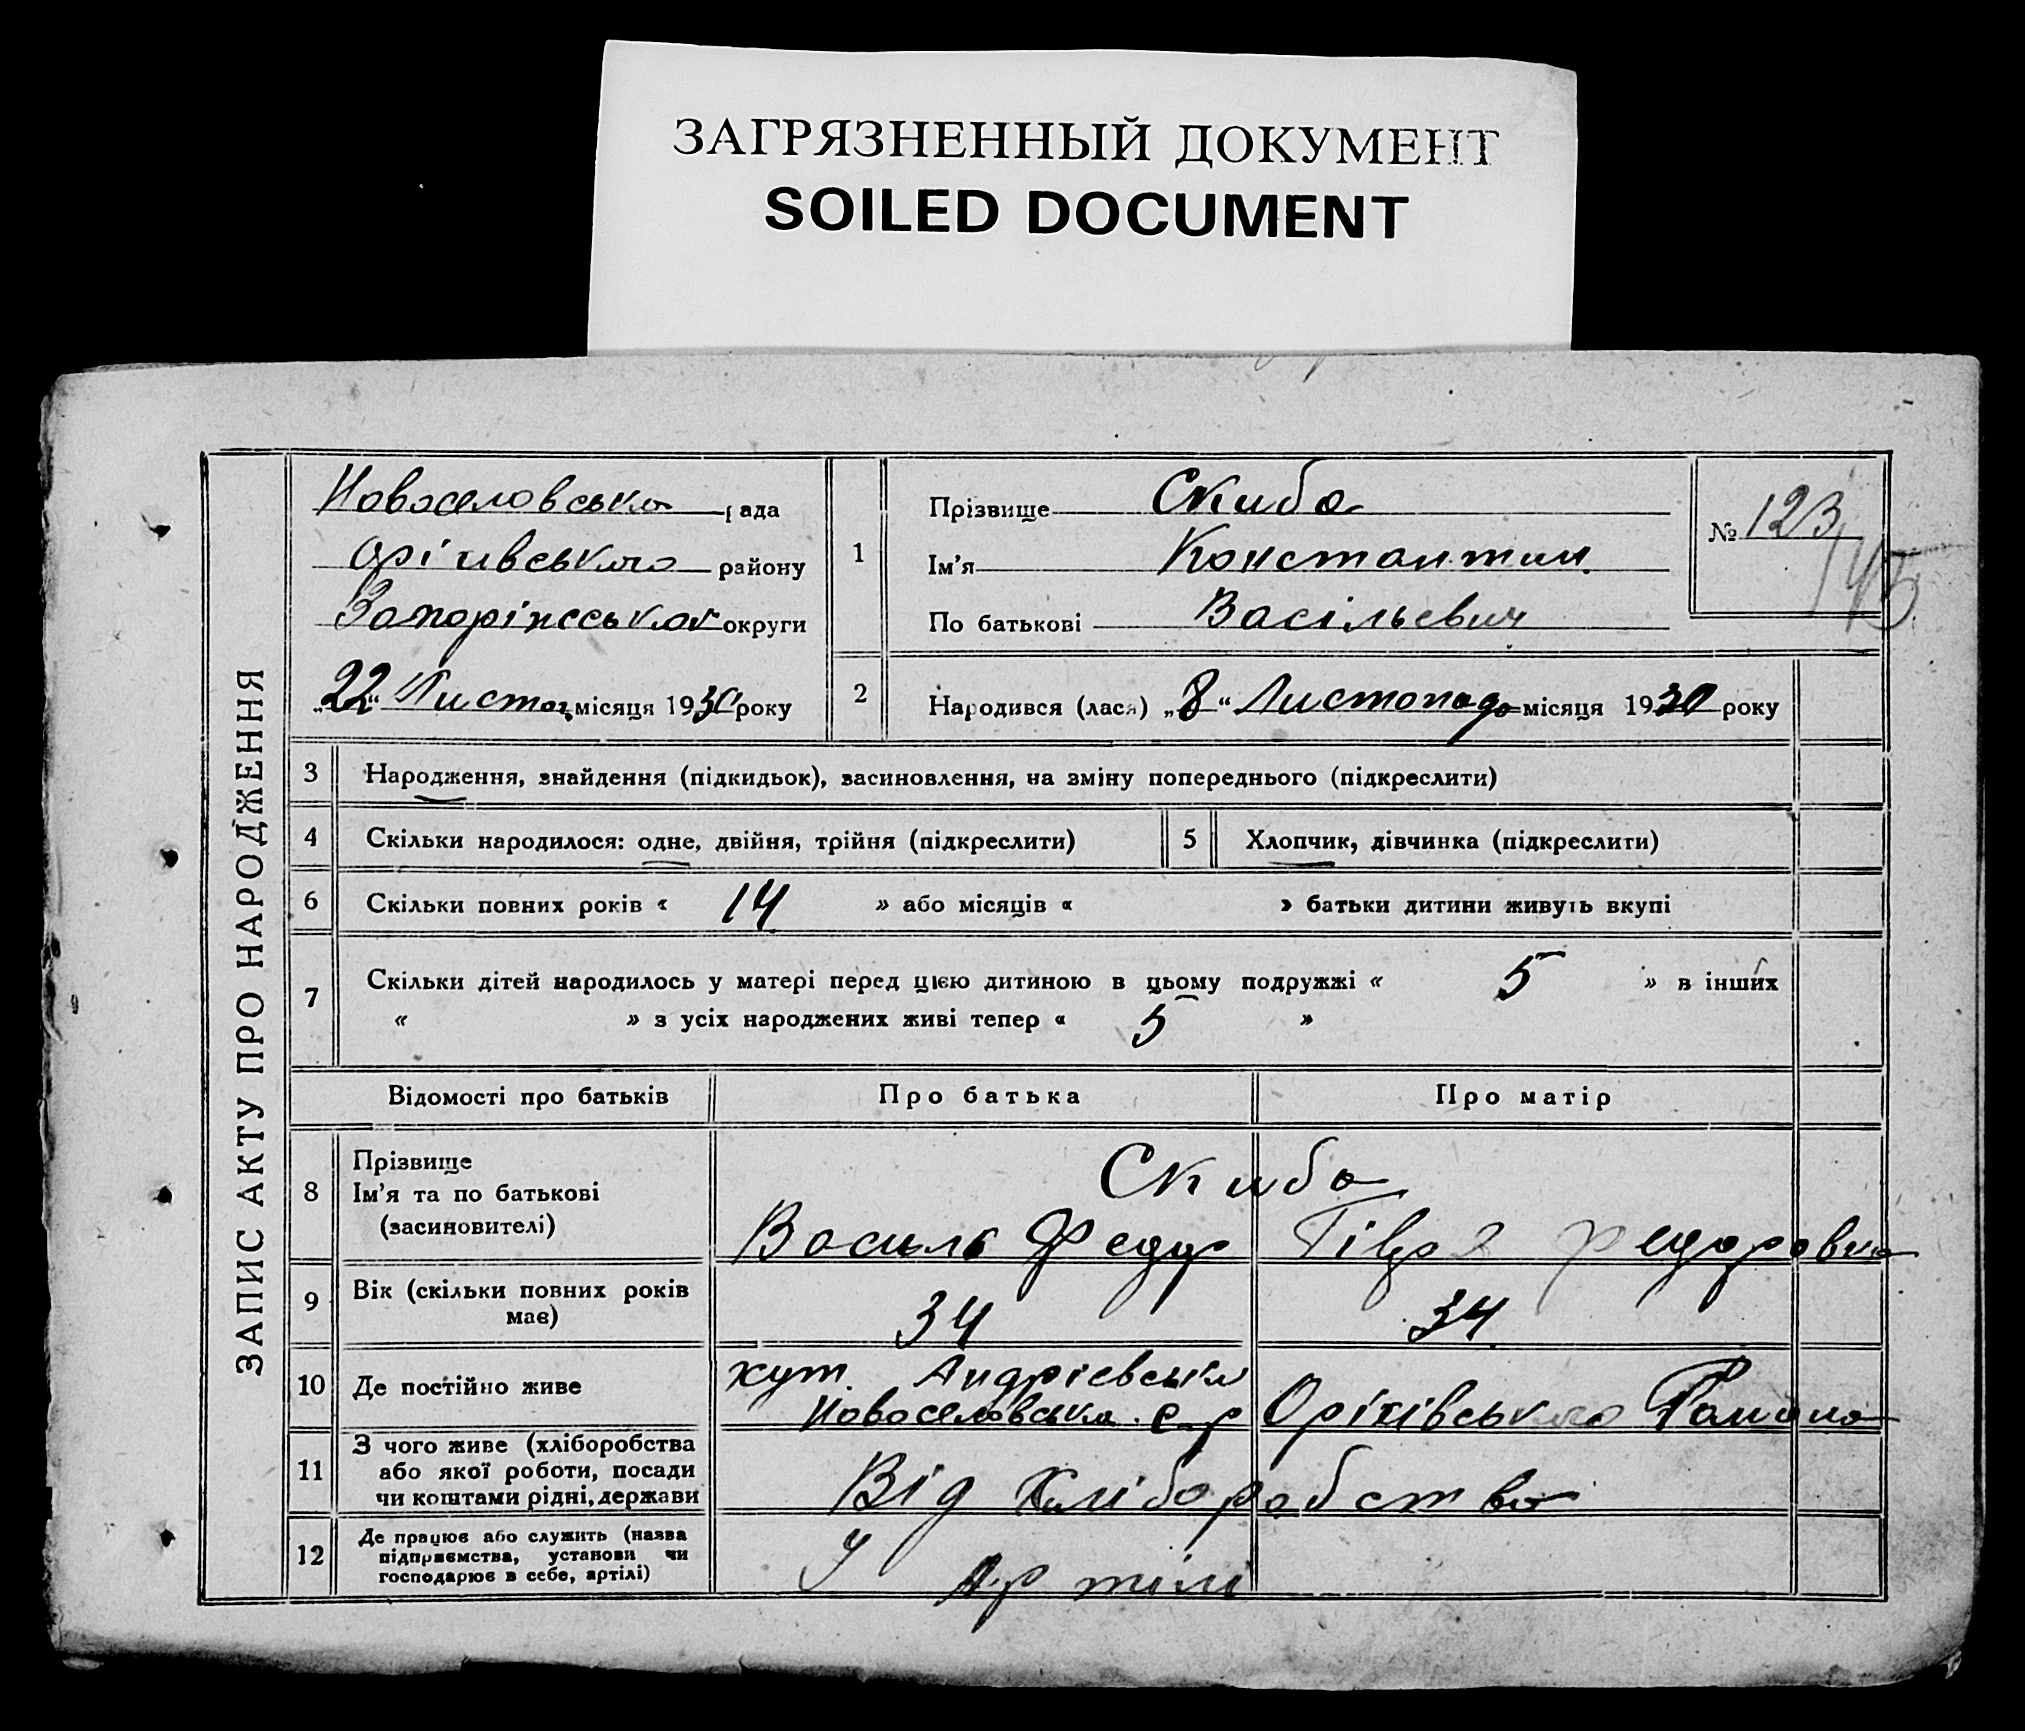 ЗАГРЯЗНЕННЫЙ ДОКУМЕНТ
SOILED DOCUMENT
ЗАПИС АКТУ ПРО НАРОДЖЕННЯ
Новоселовська рада
Оріхивського району
Запоріжської округи
„22“ Листоп місяця 1930 року
1
Прізвище Скиба
Ім'я Константин
По батькові Васільевич
№ 123
2 Народився (лася) „8“ Листопада місяця 1930 року
3 Народження, знайдення (підкидьок), засиновлення, на зміну попереднього (підкреслити)
4 Скільки народилося: одне, двійня, трійня (підкреслити)
5 Хлопчик, дівчинка (підкреслити)
6 Скільки повних років « 14 » або місяців « » батьки дитини живуть вкупі
7 Скільки дітей народилось у матері перед цією дитиною в цьому подружжі « 5 » в інших
« » з усіх народжених живі тепер « 5 »
Відомості про батьків Про батька Про матір
8 Прізвище
Ім'я та по батькові
(засиновителі)
Скиба
Василь Федур Федоровна
9 Вік (скільки повних років
має)
34 34
10 Де постійно живе
хут. Андрієвськи
Новоселовська с-р Оріхівського Району
11 З чого живе (хліборобства
або якої роботи, посади
чи коштами рідні, держави
Від Хліборобства
12 Де працює або служить (назва
підприємства, установи чи
господарює в себе, артілі)
У Артілі